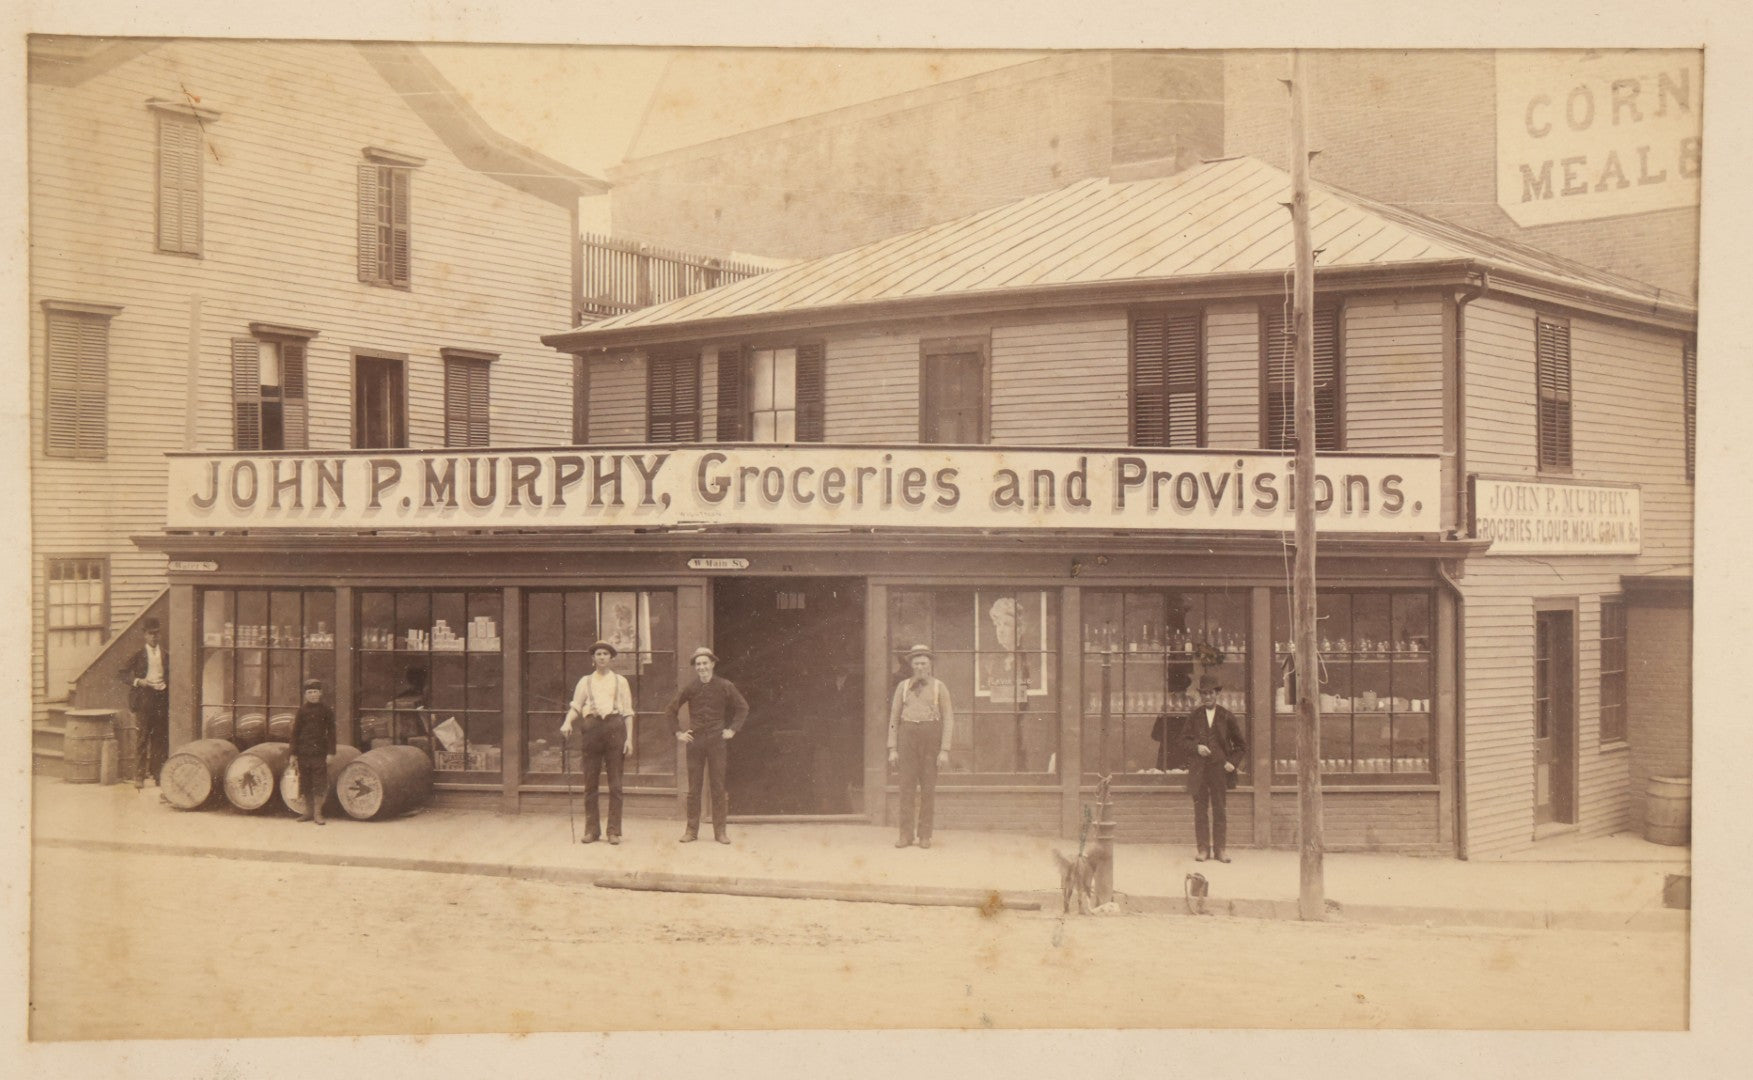 CORN
MEAL &
JOHN P. MURPHY, Groceries and Provisions.
JOHN P. MURPHY.
GROCERIES, FLOUR, MEAL, GRAIN, &c
Water St.
W Main St.